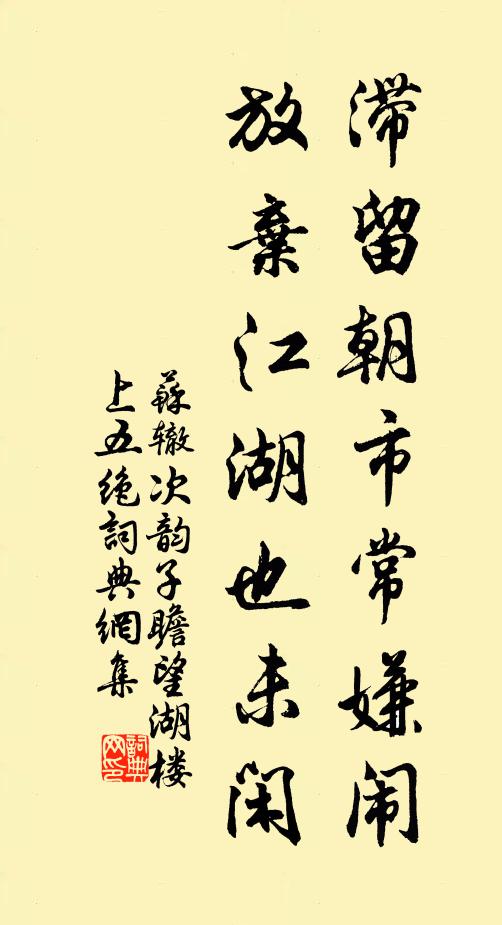 滞留朝市常嫌闹
放棄江湖也未闲
蘇辙次韵子瞻望湖楼
上五绝詞典網集
詞典
网印